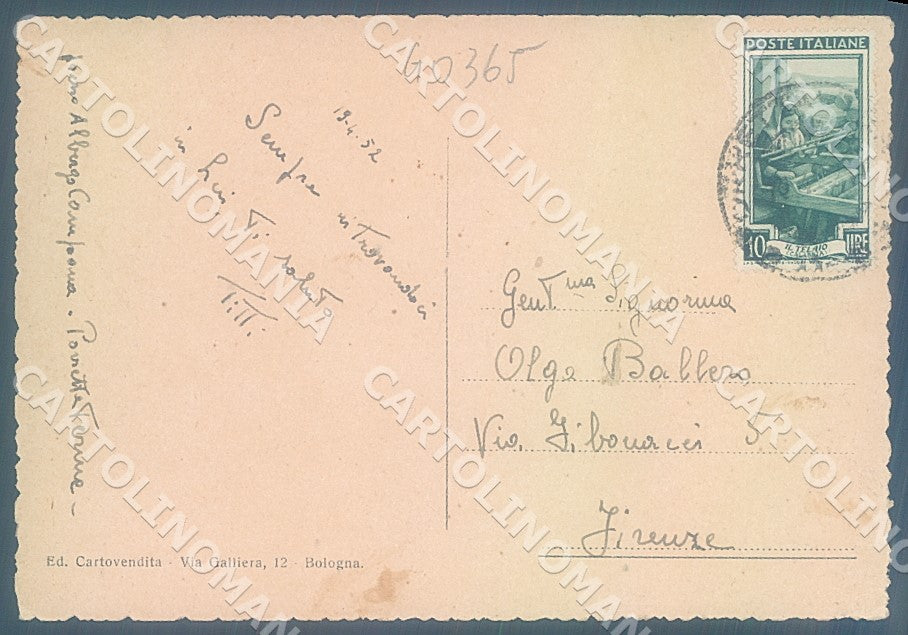 GO365
POSTE ITALIANE
10 LIRE
IL TELAIO
19.4.52
Sempre ritrovandoci
in Lui Ti saluto
Presso Albergo Campana . Porretta Terme -
Gent ma Signorina
Olga Ballero
Via Fibonacci 5
Firenze
Ed. Cartovendita - Via Galliera, 12 - Bologna.
CARTOLINOMANIA
CARTOLINOMANIA
CARTOLINOMANIA
CARTOLINOMANIA
CARTOLINOMANIA
CARTOLINOMANIA